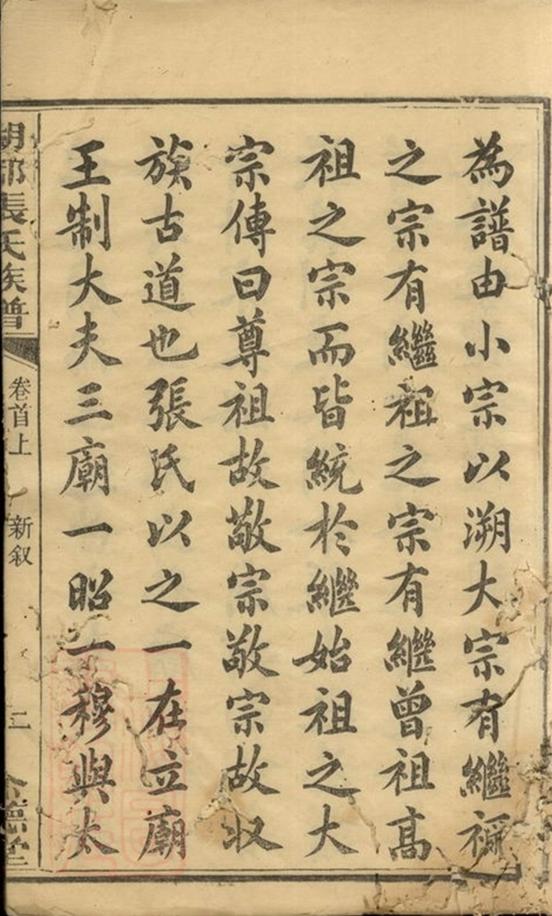 為譜由小宗以溯大宗有繼禰
之宗有繼祖之宗有繼曾祖高
祖之宗而皆統於繼始祖之大
宗傳曰尊祖故敬宗敬宗故收
族古道也張氏以之一在立廟
王制大夫三廟一昭一穆與太
張氏族譜
卷首上
新叙
二
堂